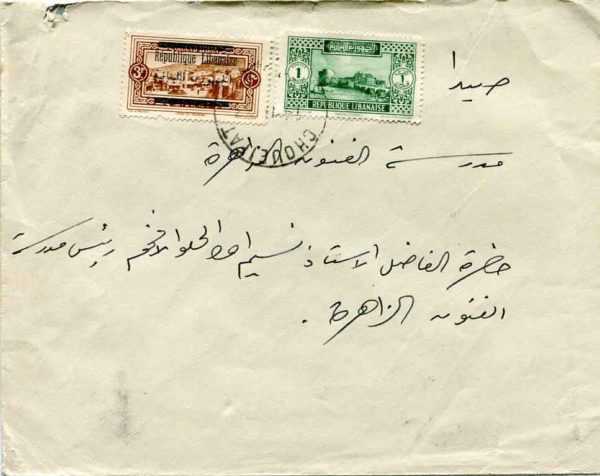 3
République Libanaise
الجمهورية اللبنانية
1
1
REPUBLIQUE LIBANAISE
CHOUEIFAT
صيدا
مدرسة الفنون الزاهرة
حضرة الفاضل الاستاذ نسيم الحلو الافخم رئيس مدرسة
الفنون الزاهرة .